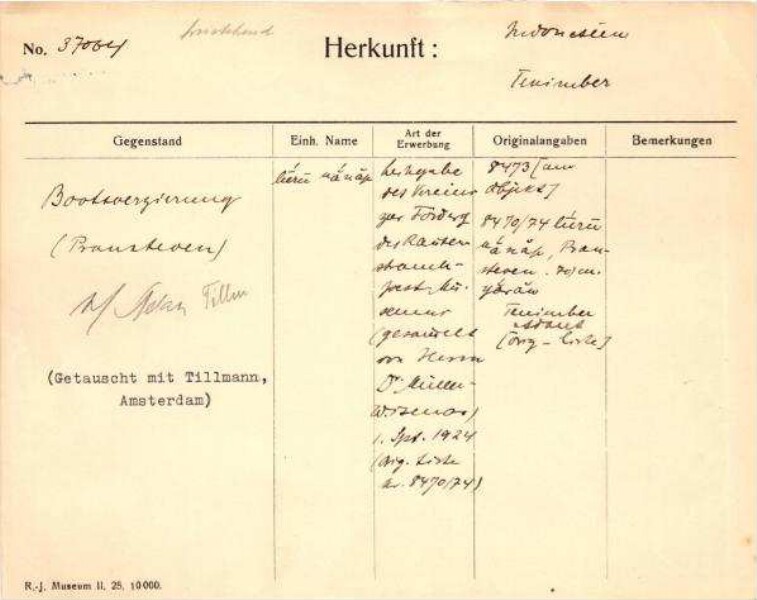 No. 37064
Herkunft:
Indonesien
Tenimber
Gegenstand
Einh. Name
Art der Erwerbung
Originalangaben
Bemerkungen
Bootsverzierung
(Pransteven)
Tillm
(Getauscht mit Tillmann,
Amsterdam)
lúrū nánāp
Leihgabe
des Vereins
zur Förderg
des Rauten-
strauch-
joest-Mu-
seums
(gesammelt
von Herrn
Dr Müller-
Wismar)
1. Spt. 1924
(Orig. Liste
nr. 8470/74)
8473 [am
Objekt]
8470/74 lúrū
nánāp, Pran-
steven.
Tenimber
[Orig-Liste]
R.-J. Museum II. 25. 10000.